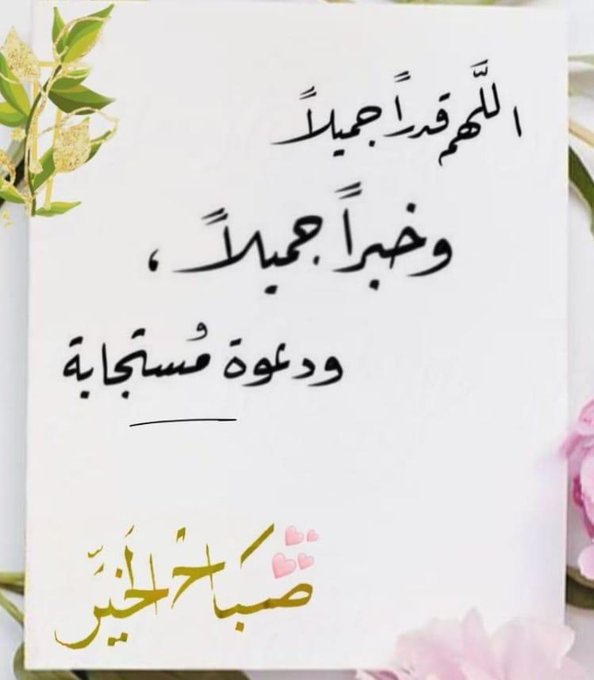 اللَّهم قدراً جميلاً
وخبراً جميلاً ،
ودعوة مُستجابة
صَبَاحْ الخَيّر